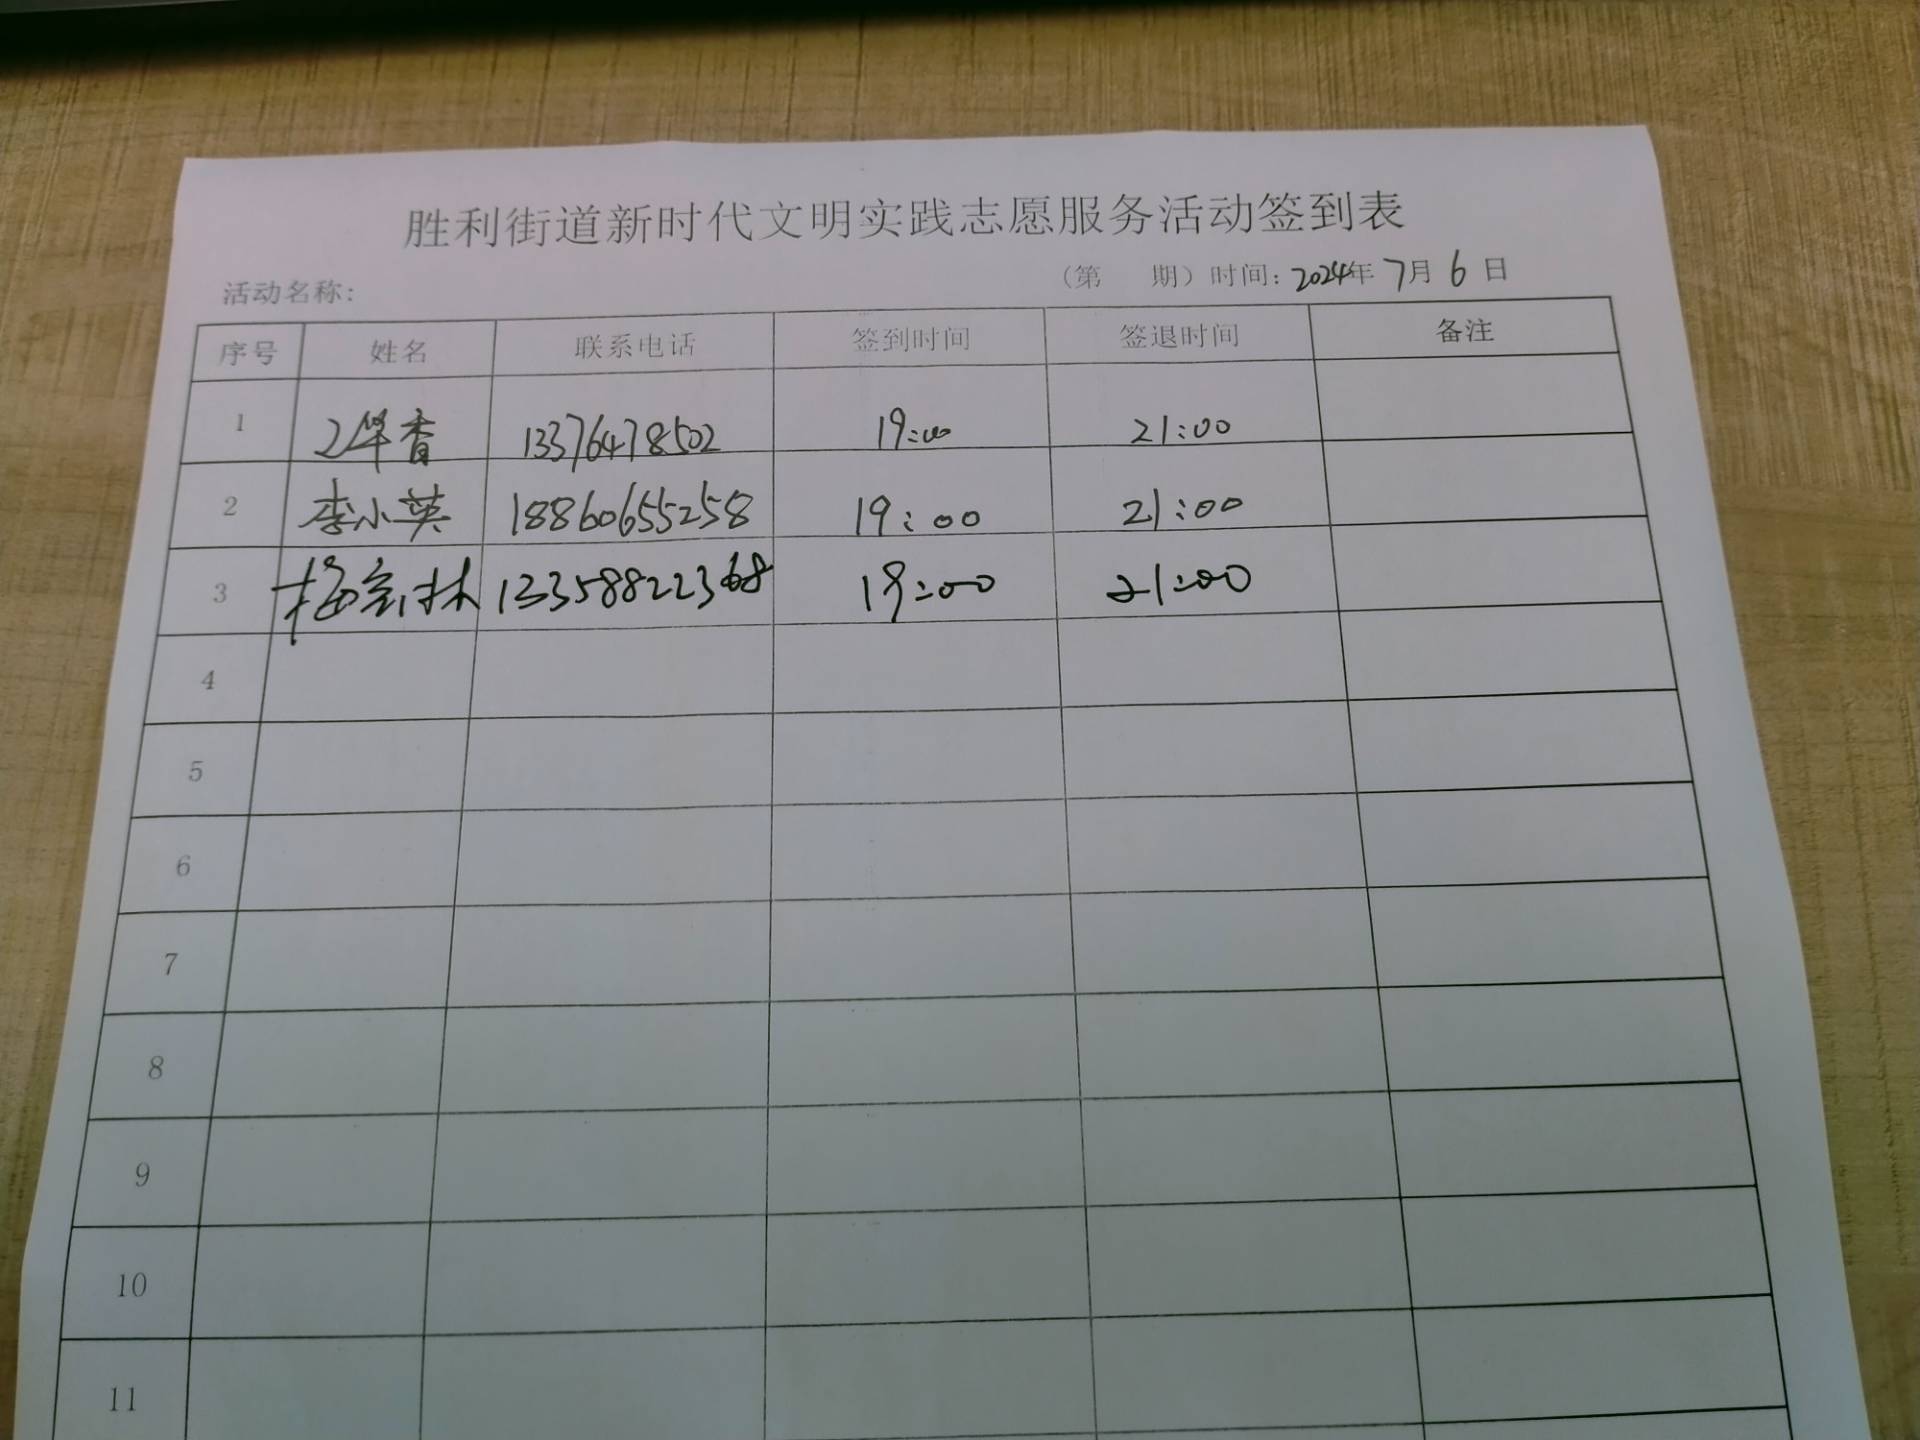 胜利街道新时代文明实践志愿服务活动签到表
活动名称: （第 期）时间: 2024年 7月 6 日
序号 姓名 联系电话 签到时间 签退时间 备注
1 13376478502 19:00 21:00
2 李小英 18860655258 19:00 21:00
3 13358822368 19:00 21:00
4
5
6
7
8
9
10
11